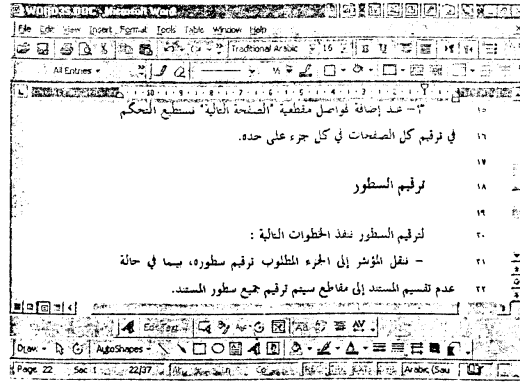 WORD35.DOC - Microsoft Word
File Edit View Insert Format Tools Table Window Help
Traditional Arabic 16 B U
All Entries
١٥ ٣- عند إضافة فواصل مقطعية "الصفحة التالية" نستطيع التحكم
١٦ في ترقيم كل الصفحات في كل جزء على حده.
١٧
١٨ ترقيم السطور
١٩
٢٠ لترقيم السطور ننفذ الخطوات التالية :
٢١ – ننقل المؤشر إلى الجزء المطلوب ترقيم سطوره، بينما في حالة
٢٢ عدم تقسيم المستند إلى مقاطع سيتم ترقيم جميع سطور المستند.
Edit Text...
Draw AutoShapes
Page 22 Sec 1 22/37 Arabic (Sau